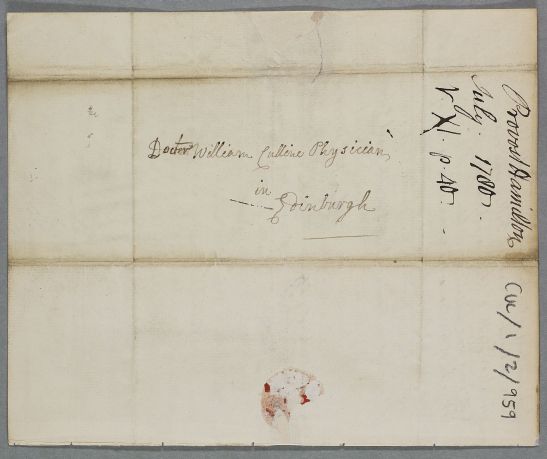 Doctor William Culline Physician
in
Edinburgh
Provost Hamilton
July. 1780.
V. XI. p. 40.
CUL/1/2/959